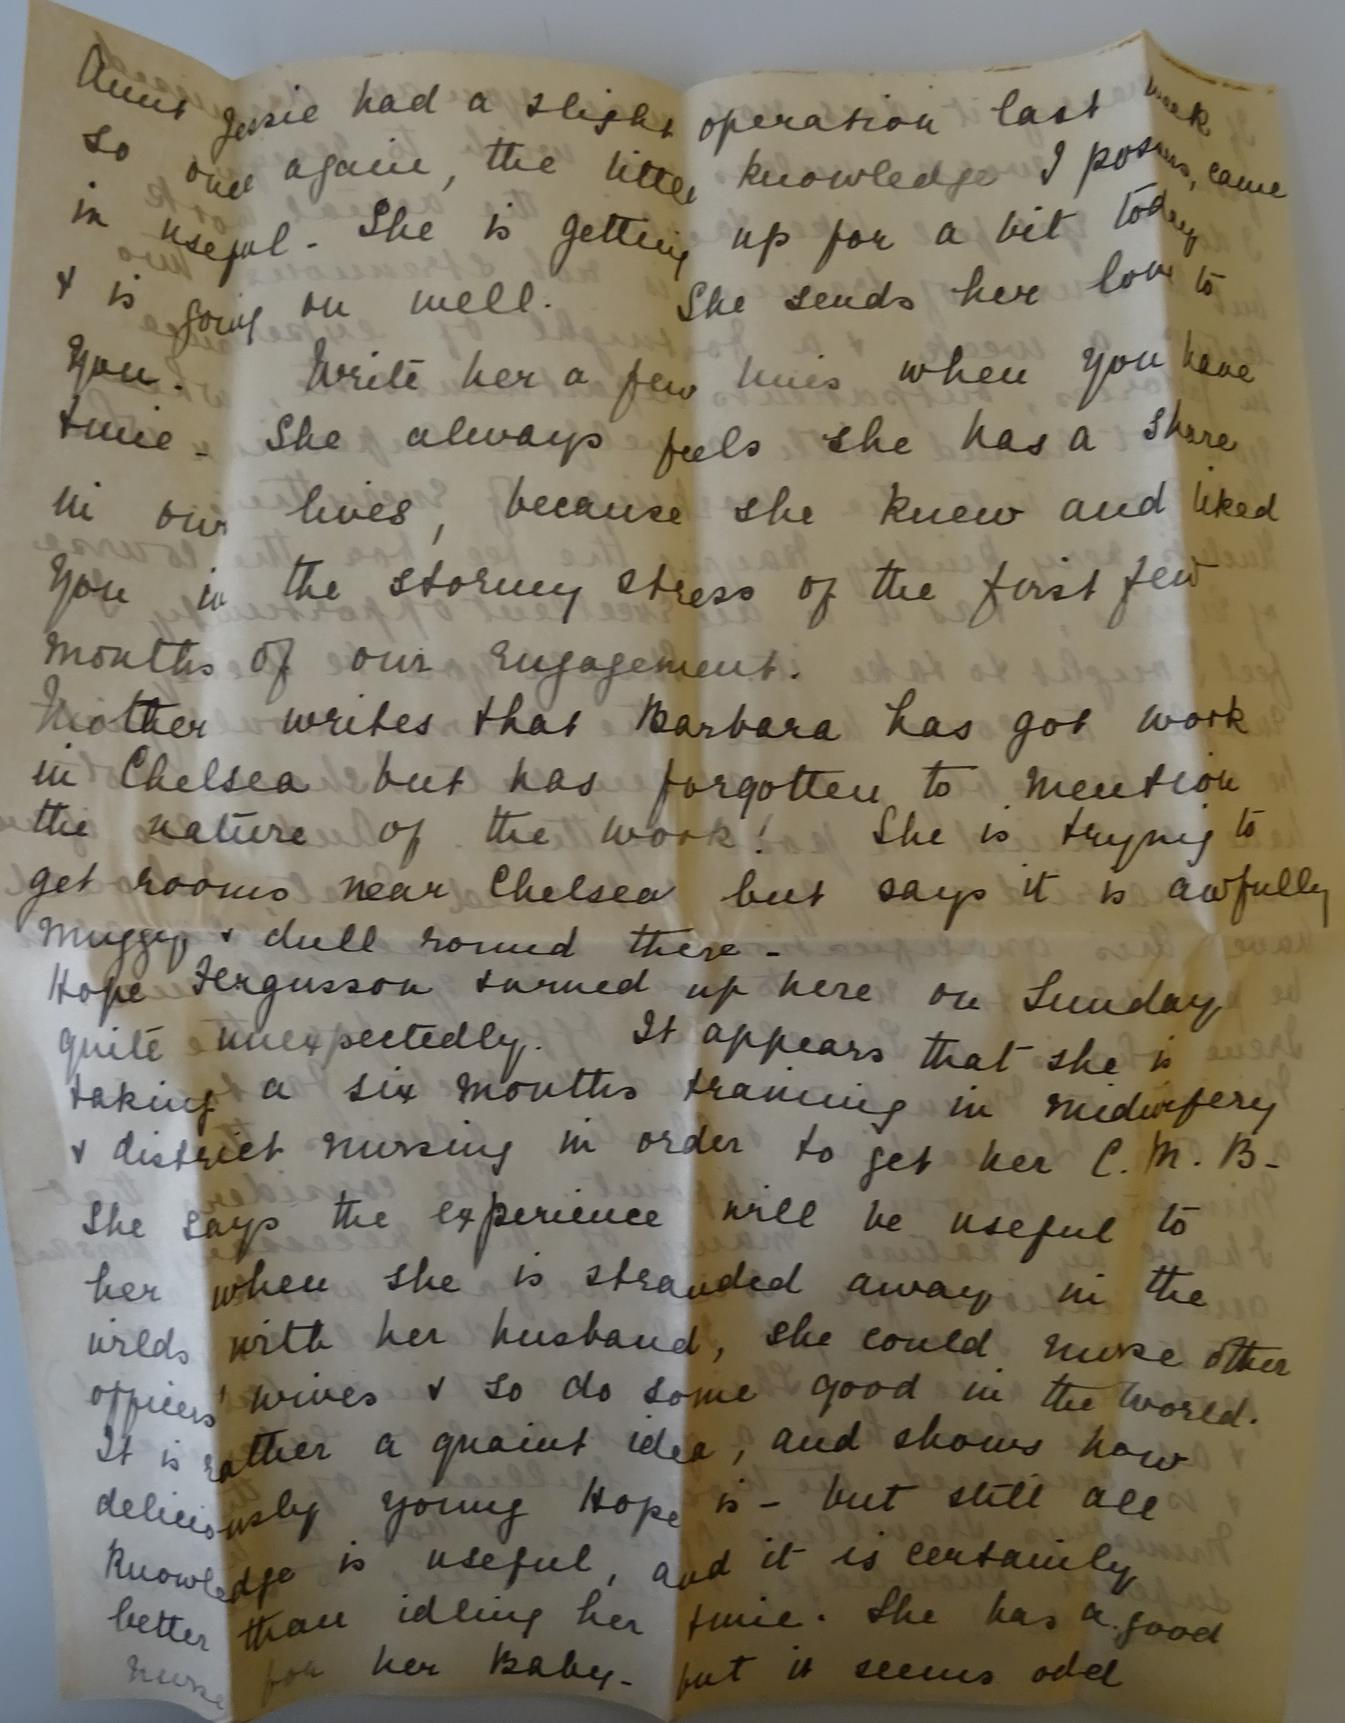 Aunt Jessie had a slight operation last week
so once again, the little knowledge I possess, came
in useful - She is getting up for a bit today
& is going on well. She sends her love to
you. Write her a few lines when you have
time - She always feels she has a share
in our lives, because she knew and liked
you in the stormy stress of the first few
months of our engagement.
Mother writes that Barbara has got work
in Chelsea but has forgotten to mention
the nature of the work! She is trying to
get rooms near Chelsea but says it is awfully
muggy & dull round there -
Hope Fergusson turned up here on Sunday
quite unexpectedly. It appears that she is
taking a six months training in midwifery
& district nursing in order to get her C. M. B -
She says the experience will be useful to
her when she is stranded away in the
wilds with her husband, she could nurse other
officers' wives & so do some good in the world.
It is rather a quaint idea, and shows how
deliciously young Hope is - but still all
knowledge is useful, and it is certainly
better than idling her time. She has a good
nurse for her Baby - but it seems odd